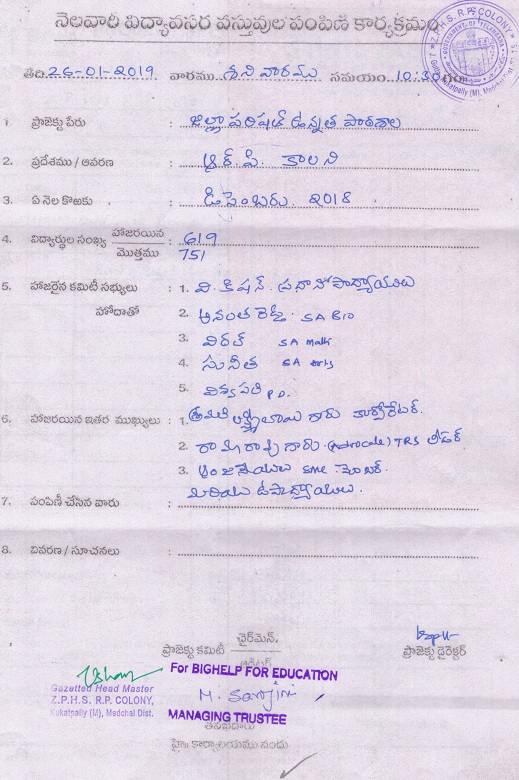 నెలవారి విద్యావసర వస్తువుల పంపిణి కార్యక్రమం
తేది 26-01-2019 వారము శనివారము సమయం 10:30 గం॥
1. ప్రాజెక్టు పేరు : జిల్లా పరిషత్ ఉన్నత పాఠశాల
2. ప్రదేశము / ఆవరణ : ఆర్.పి. కాలని
3. ఏ నెల కొఱకు : డిసెంబరు 2018
4. విద్యార్థుల సంఖ్య హాజరయిన : 619
మొత్తము 751
5. హాజరైన కమిటీ సభ్యులు : 1. వి. కిషన్. ప్రధానోపాధ్యాయులు
హోదాతో 2. అనంత రెడ్డి. SA Bio
3. SA Maths
4. సునీత SA
5. P.D.
6. హాజరయిన ఇతర ముఖ్యులు : 1. శ్రీమతి లక్ష్మీబాయి గారు కార్పోరేటర్.
2. రామారావు గారు. (Advocate) TRS లీడర్
3. ఆంజనేయులు SMC మెంబర్.
మరియు ఉపాధ్యాయులు.
7. పంపిణీ చేసిన వారు :
8. వివరణ / సూచనలు :
ఛైర్‌మెన్,
ప్రాజెక్టు కమిటీ ప్రాజెక్టు డైరెక్టర్
For BIGHELP FOR EDUCATION
Gazetted Head Master
Z.P.H.S. R.P. COLONY, M. Sarojini
Kukatpally (M), Medchal Dist. MANAGING TRUSTEE
హై॥ కార్యాలయము నందు
Z.P.H.S. R.P. COLONY
Kukatpally (M), Medchal